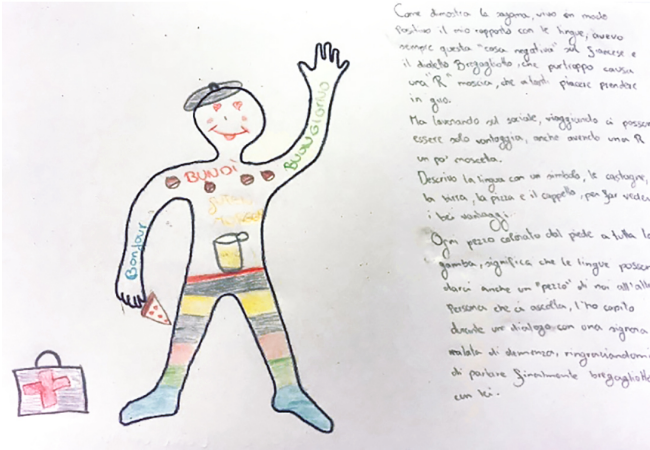 BUONGIORNO
BUNDÌ
GUTEN
MORGEN
Bonjour
Come dimostra la sagoma, vivo in modo
positivo il mio rapporto con le lingue, avevo
sempre questa "cosa negativa" sul francese e
il dialetto Bregagliotto, che purtroppo causa
una "R" moscia, che a tanti piacere prendere
in giro.
Ma lavorando nel sociale, viaggiando ci possono
essere solo vantaggi, anche avendo una R
un po' moscetta.
Descrivo la lingua con un simbolo, le castagne,
la birra, la pizza e il cappello, per far vedere
i bei vantaggi.
Ogni pezzo colorato dal piede a tutta la
gamba, significa che le lingue possono
darci anche un "pezzo" di noi all'altra
persona che ci ascolta, l'ho capito
durante un dialogo con una signora
malata di demenza, ringraziandomi
di parlare finalmente bregagliotto
con lei.